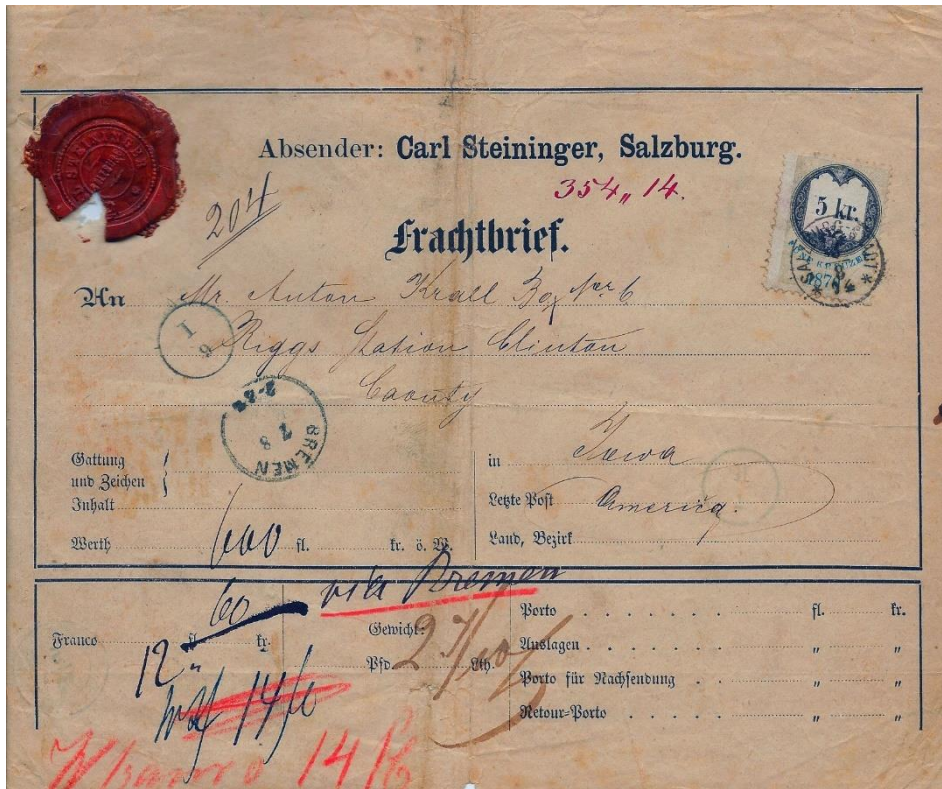 Absender: Carl Steininger, Salzburg.
354,, 14.
204
Frachtbrief.
5 kr.
An Mr. Anton Krall Box Nro 6
Riggs Station Clinton
Caouty
I
6
BREMEN
7 8
Gattung
und Zeichen
Inhalt
Werth 600 fl. kr. ö. W.
in Iowa
Letzte Post America.
Land, Bezirk
60 via Bremen
Franco fl. kr.
12
Gewicht:
Pfd. 2 7/10 Lth.
Porto . . . . . . . fl. kr.
Auslagen . . . . . . . " "
Porto für Nachsendung . . " "
Retour-Porto . . . . . . " "
14
14